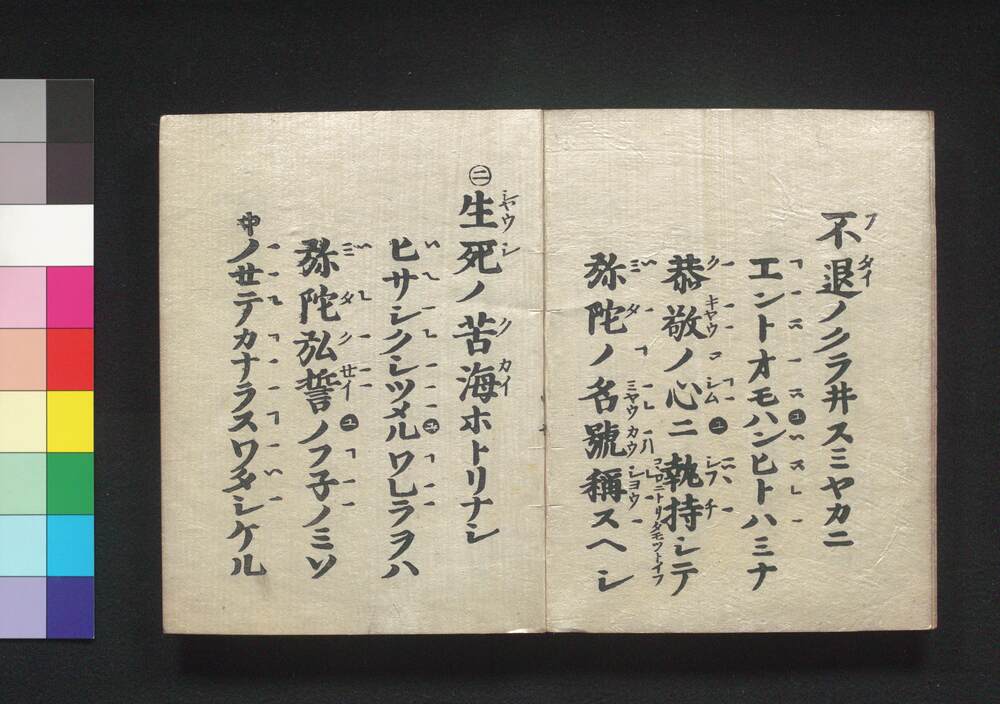 不退ノクラ井スミヤカニ
エントオモハンヒトハミナ
恭敬ノ心ニ執持シテ
弥陀ノ名號稱スヘシ
㊁生死ノ苦海ホトリナシ
ヒサシクシツメルワレラヲハ
弥陀弘誓ノフ子ノミソ
ノセテカナラスワタシケル